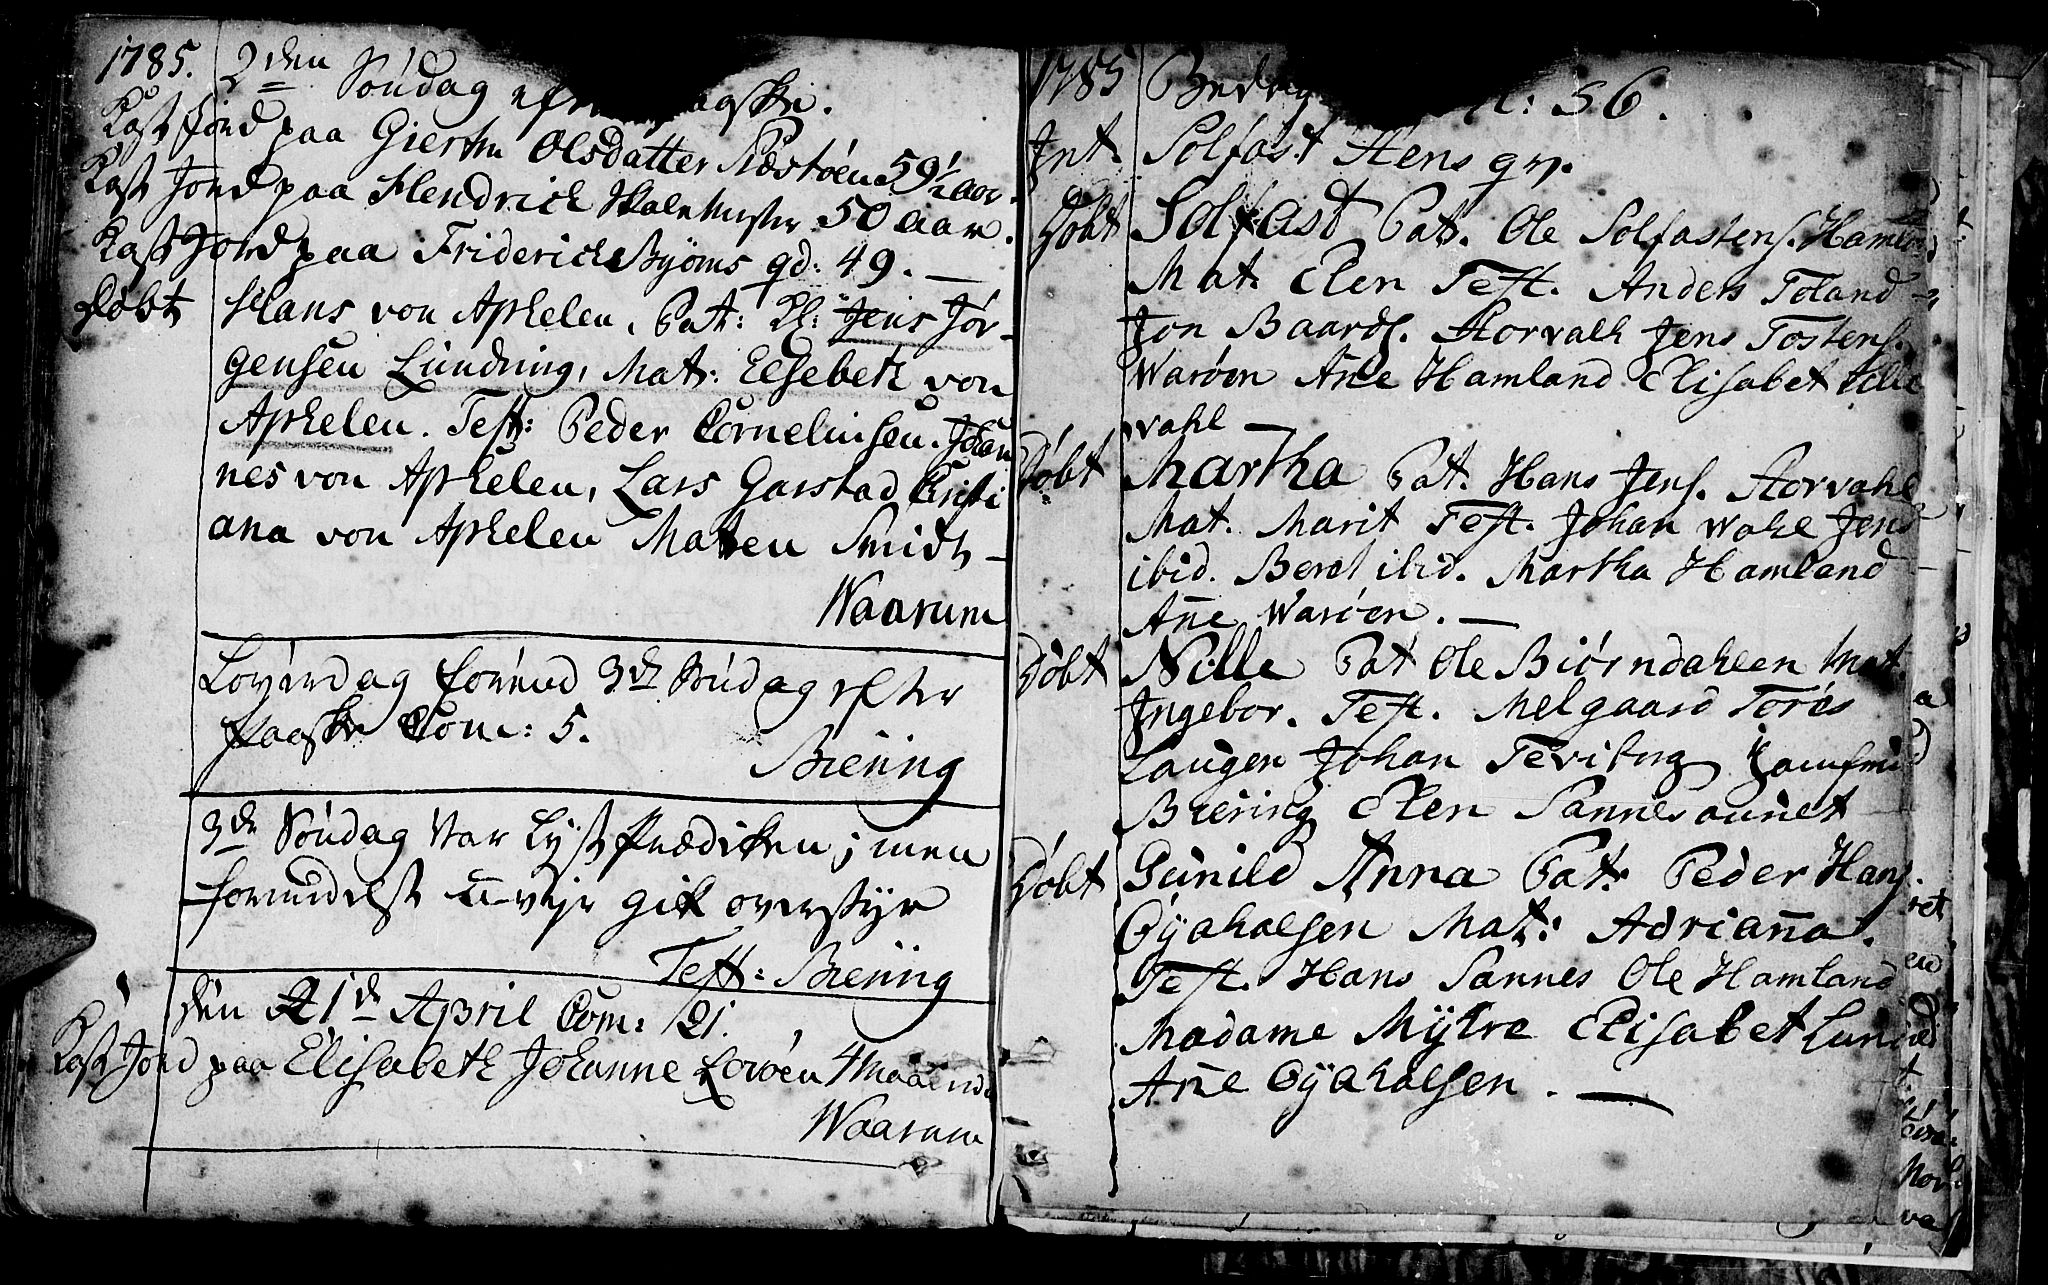 1785.
2den Søndag efter Paaske.
Kast Jord paa Giertru Olsdatter Næstøen 59½ aar.
Kast Jord paa Hendrick 50 aar.
Kast Jord paa Friderich Byöms gd: 49. —
Døbt Hans von Aphelen, Pat: Jens Jør-
gensen Lundning, Mat: Elsebeth von
Aphelen. Test: Peder Cornelinsen. Johan
nes von Aphelen, Lars Garstad Cristi
ana von Aphelen Maren Smidt —
Waarum
Løverdag forend 3de Søndag efter
Paaske Com: 5.
Biering
3de Søndag var lyst Prædiken; men
formedelst u-vejr gik overstyr
Test: Biering
den 21de April Com: 21.
Kast Jord paa Elisabeth Johanne Lovøen 4 Maaend
Waarum
1785 56.
Int. Solfast Stens qv.
Døbt Solfast Pat. Ole Solfastens. Hamland
Mat. Elen Test. Anders Toland
Jon Baards. Storvahl Jens Tostens.
Warøen Ane Hamland Elisabet
vahl —
Døbt Martha Pat. Hans Jens. Storvahl
Mat. Marit Test. Johan Wahl Jens
ibid. Beret ibid. Martha Hamland
Anne Warøen. —
Døbt Nille Pat Ole Biørndahlen Mat.
Ingebor. Test. Melgaard Torøs
Laugen Johan Teviborg Jomfru
Biering Elen Sannesaunet
Døbt Gunild Anna Pat: Peder Hans.
Øyahalsen Mat: Adrianna.
Test. Hans Sannes Ole Hamland
Madame Mylre Elisabet Lund
Anne Øyahalsen. —